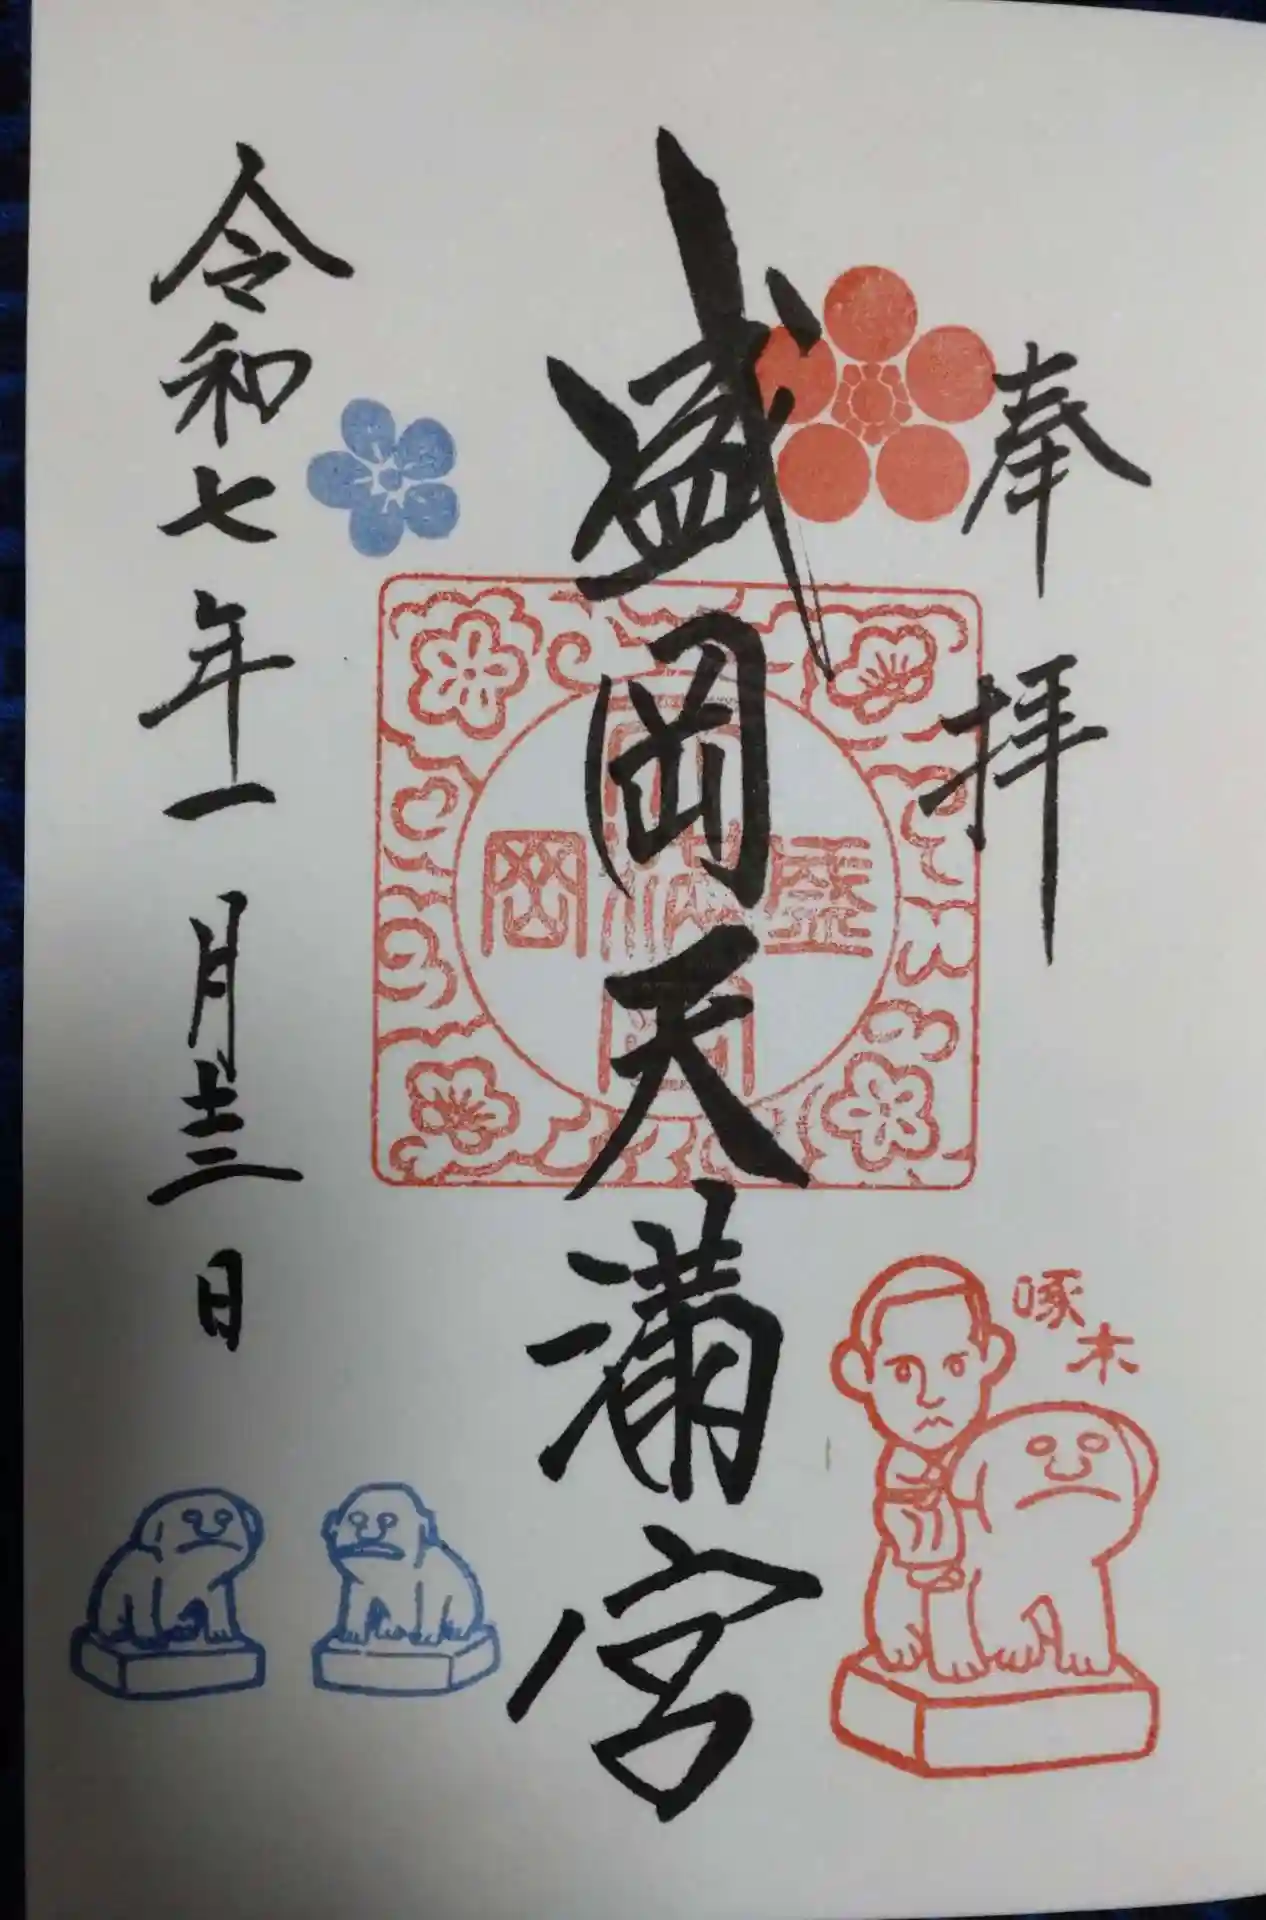 奉拝
盛岡天満宮
令和七年一月十三日
盛岡
啄木